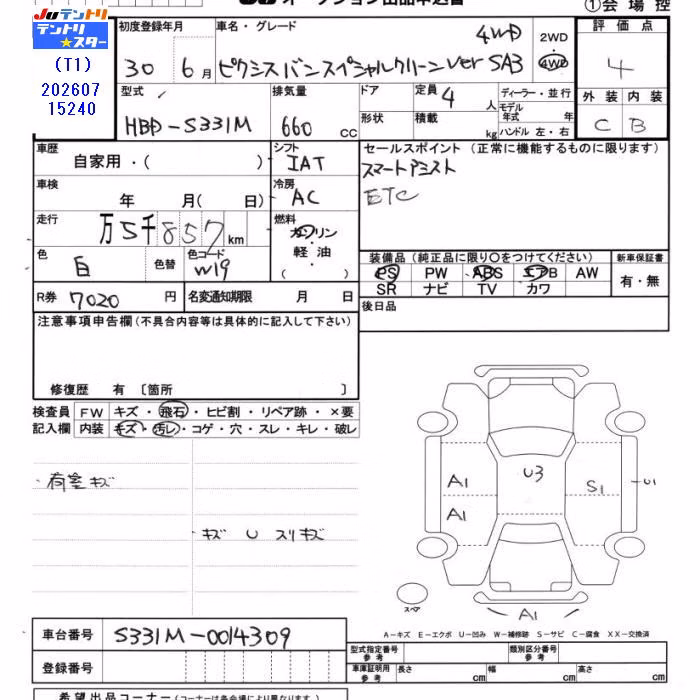 JU オークション出品申込書
①会場控
JUテントリ
テントリ★スター
(T1)
202607
15240
初度登録年月
30 6月
車名・グレード
4WD
ピクシスバンスペシャルクリーンVer SA3
2WD
・
4WD
評価点
4
外装 内装
C B
型式
HBD-S331M
排気量
660 cc
ドア
形状
定員 4 人
積載 kg
ディーラー・並行
モデル年式 年
ハンドル 左・右
車歴
自家用・( )
シフト
IAT
車検
年 月( 日)
冷房
AC
走行
万5千857km
燃料
ガソリン
・
軽油
( )
色
白
色替
色コード
W19
R券 7020 円
名変通知期限 月 日
セールスポイント(正常に機能するものに限ります)
スマートアシスト
ETC
装備品(純正品に限り○をつけてください)
新車保証書
PS PW ABS エアB AW
SR ナビ TV カワ
有・無
後日品
注意事項申告欄(不具合内容等は具体的に記入して下さい)
修復歴 有 〔箇所 〕
検査員記入欄
FW キズ・飛石・ヒビ割・リペア跡・×要
内装 キズ・汚レ・コゲ・穴・スレ・キレ・破レ
・荷室キズ
・キズ U スリキズ
A1
A1
U3
S1
U1
A1
スペア
A-キズ E-エクボ U-凹み W-補修跡 S-サビ C-腐食 XX-交換済
車台番号 S331M-0014309
登録番号
型式指定番号 参考
類別区分番号 参考
車庫証明用 参考
長さ cm 幅 cm 高さ cm
希望出品コーナー(コーナーは各会場により異なります)